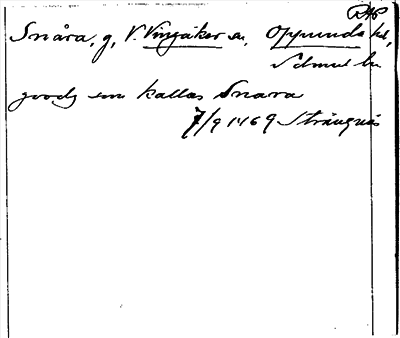 RAP
Snåra, g, V. Vingåker sn, Oppunda hd,
Södml. ln
goodz em kallas Snara
7/9 1469 Strängnäs